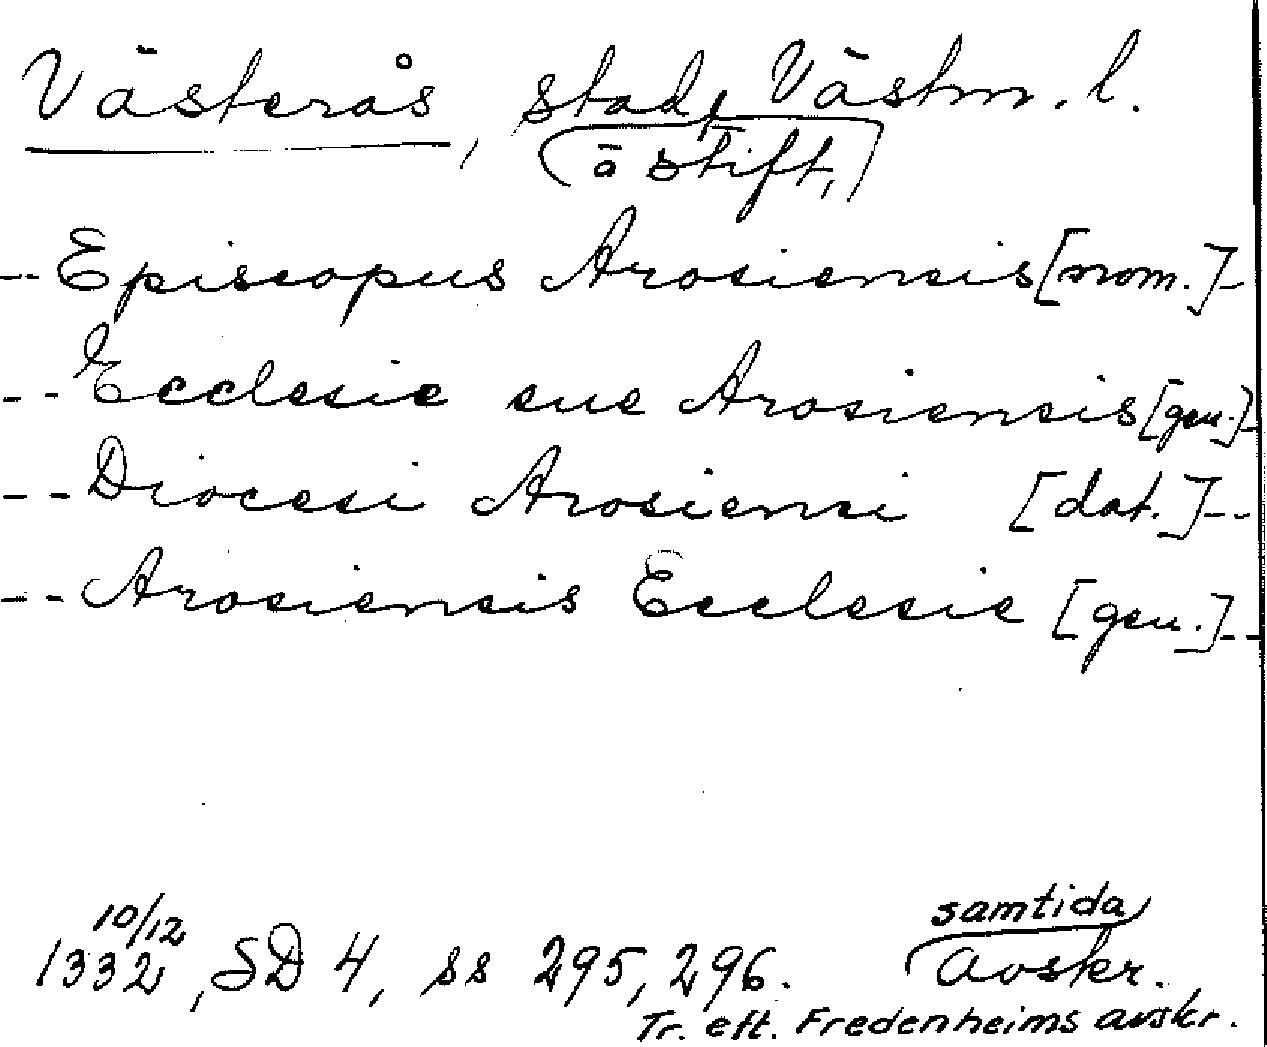 Västerås, stad, Västm. l.
ä stift,
-- Episcopus Arosiensis [nom.] -
-- Ecclesie sue Arosiensis [gen.] -
-- Diocesi Arosiensi [dat.] --
-- Arosiensis Ecclesie [gen.] --
10/12 samtida
1332, SD 4, ss 295, 296. avskr.
Tr. eft. Fredenheims avskr.